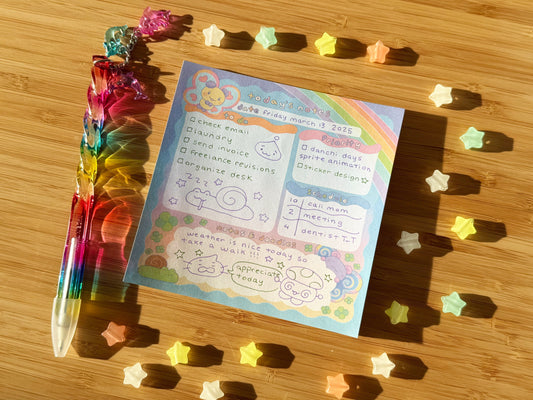 today's notes
date friday march 13 2025
to do
check email
laundry
send invoice
freelance revisions
organize desk
zzz
priority
danchi days
sprite animation
sticker design
schedule
10 call mom
2 meeting
4 dentist T_T
notes & doodles
weather is nice today so
take a walk !!!
appreciate
today